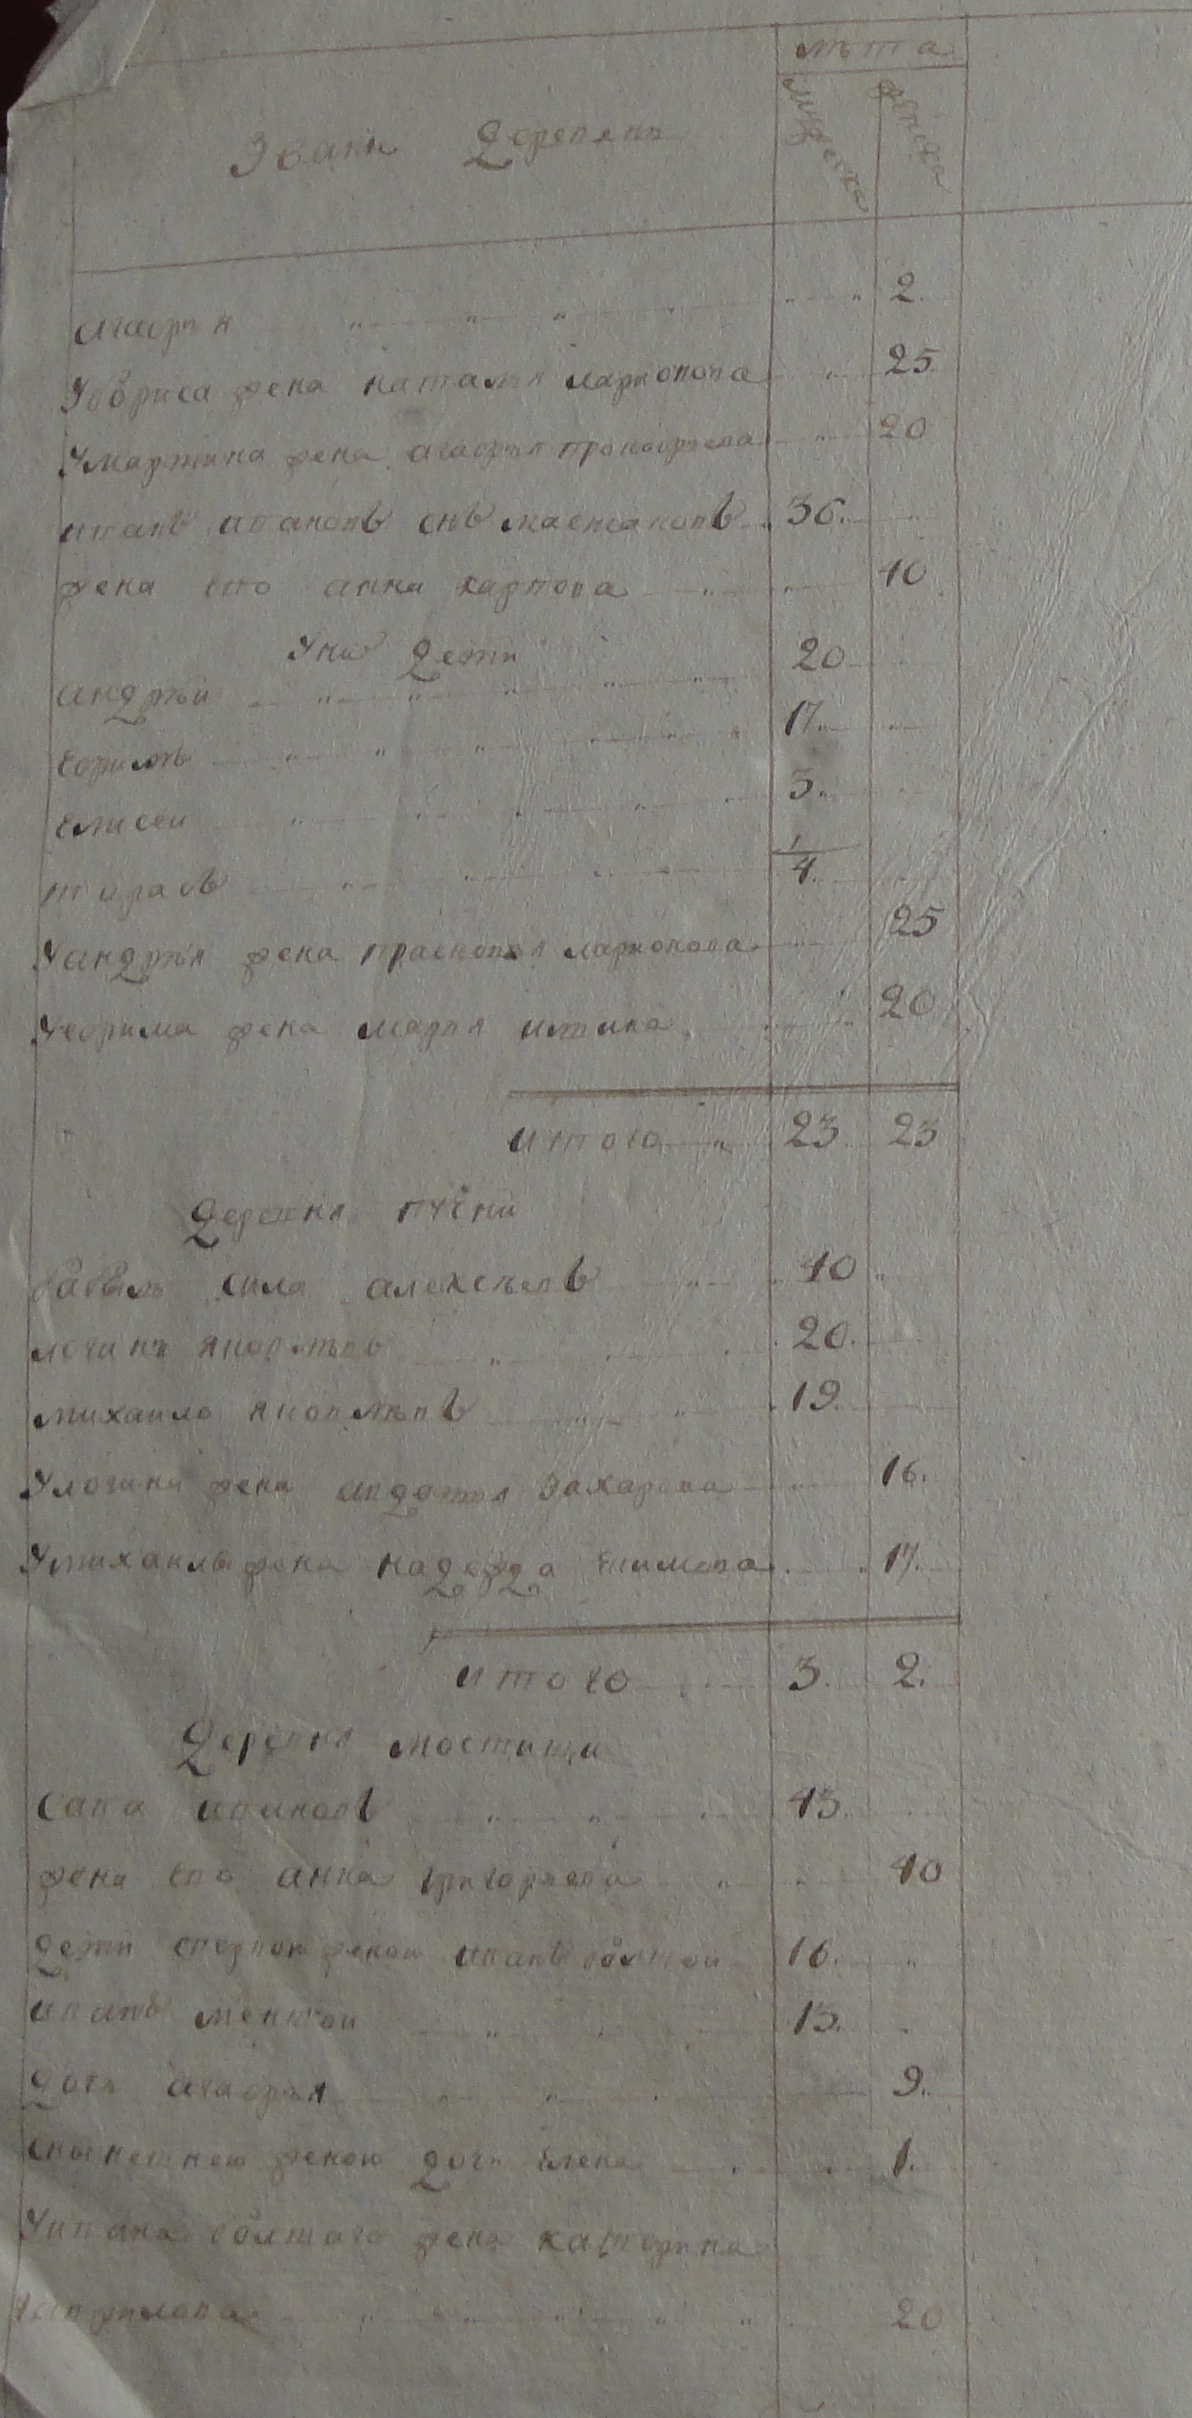 лѣта
Звани деревени мужеска женска
агафья 2.
У бориса жена наталья ларионова 25
У мартина жена агафья прокофьева 20
иванъ ивановъ снъ мастаковъ 36.
жена ево анна карпова 40
У нихъ дети
андрѣй 20
ефимъ 17.
елисей 3.
тарасъ 1/4.
У андрѣя жена прасковья ларионова 25
У ефима жена марья 20
итого 23 23
деревня
бобыль сила алексѣевъ 40
логинъ 20.
михаило 19
У логина жена авдотья захарова 16.
У михаилы жена надежда 17.
итого 3. 2.
деревня мостищи
сава ивановъ 43.
жена ево анна григорьева 40
дети с первой женою иванъ болшой 16.
иванъ меншой 13.
дочь агафья 9.
с нынешнею женою дочь елена 1.
У ивана болшаго жена катерина
20